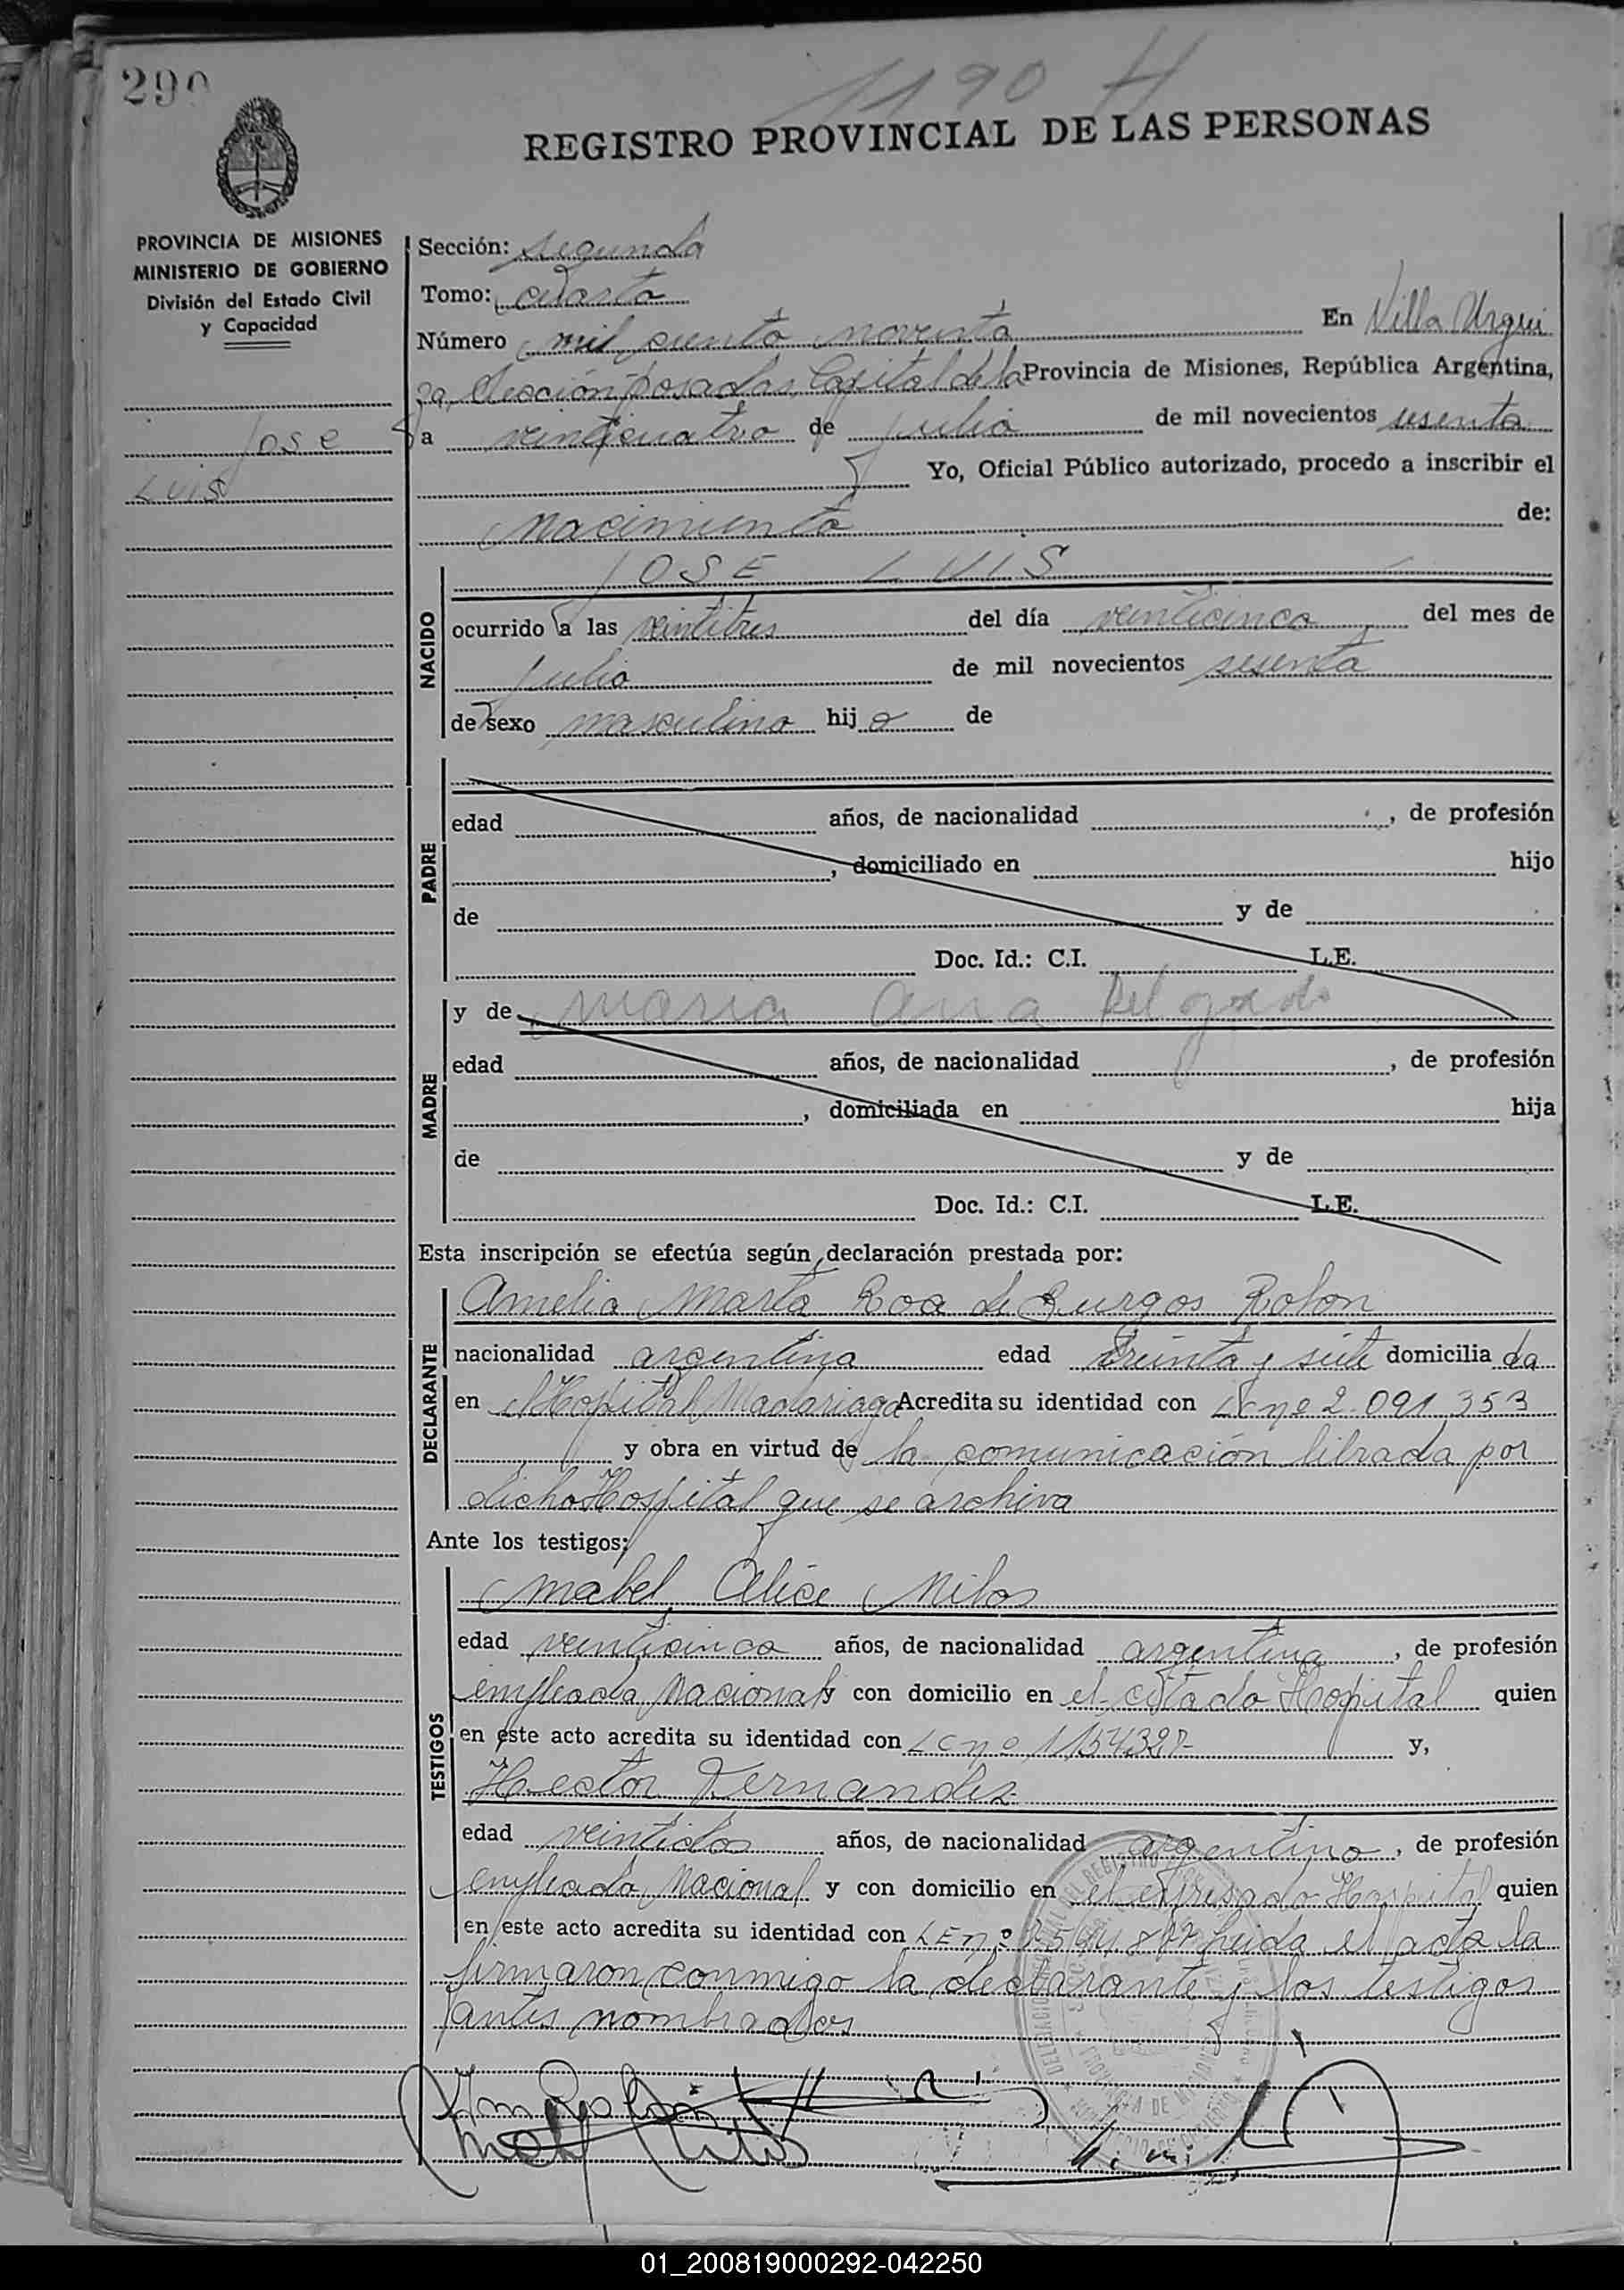 290
1190 H
REGISTRO PROVINCIAL DE LAS PERSONAS
PROVINCIA DE MISIONES
MINISTERIO DE GOBIERNO
División del Estado Civil
y Capacidad
Jose
Luis
Sección: segunda
Tomo: cuarto
Número mil ciento noventa En Villa Urqui
za, Sección posadas, Capital de la Provincia de Misiones, República Argentina,
a veinticuatro de julio de mil novecientos sesenta
Yo, Oficial Público autorizado, procedo a inscribir el
Nacimiento de:
JOSE LUIS
NACIDO
ocurrido a las veintitres del día veinticinco del mes de
julio de mil novecientos sesenta
de sexo masculino hijo de
PADRE
edad años, de nacionalidad , de profesión
, domiciliado en hijo
de y de
Doc. Id.: C.I. L.E.
MADRE
y de Maria Ana Delgado
edad años, de nacionalidad , de profesión
, domiciliada en hija
de y de
Doc. Id.: C.I. L.E.
Esta inscripción se efectúa según declaración prestada por:
DECLARANTE
Amelia Marta Roa de Burgos Rolon
nacionalidad argentina edad treinta y siete domiciliada
en el Hospital Madariaga Acredita su identidad con LC nº 2.091.353
y obra en virtud de la comunicación librada por
dicho Hospital que se archiva
Ante los testigos:
TESTIGOS
Mabel Alice Milos
edad veinticinco años, de nacionalidad argentina, de profesión
empleada Nacional y con domicilio en el citado Hospital quien
en este acto acredita su identidad con LC nº 1154327 y,
Hector Fernandez
edad veintidos años, de nacionalidad argentino, de profesión
empleado Nacional y con domicilio en el expresado Hospital quien
en este acto acredita su identidad con LE nº leida el acta la
firmaron conmigo la declarante y los testigos
antes nombrados
01_200819000292-042250